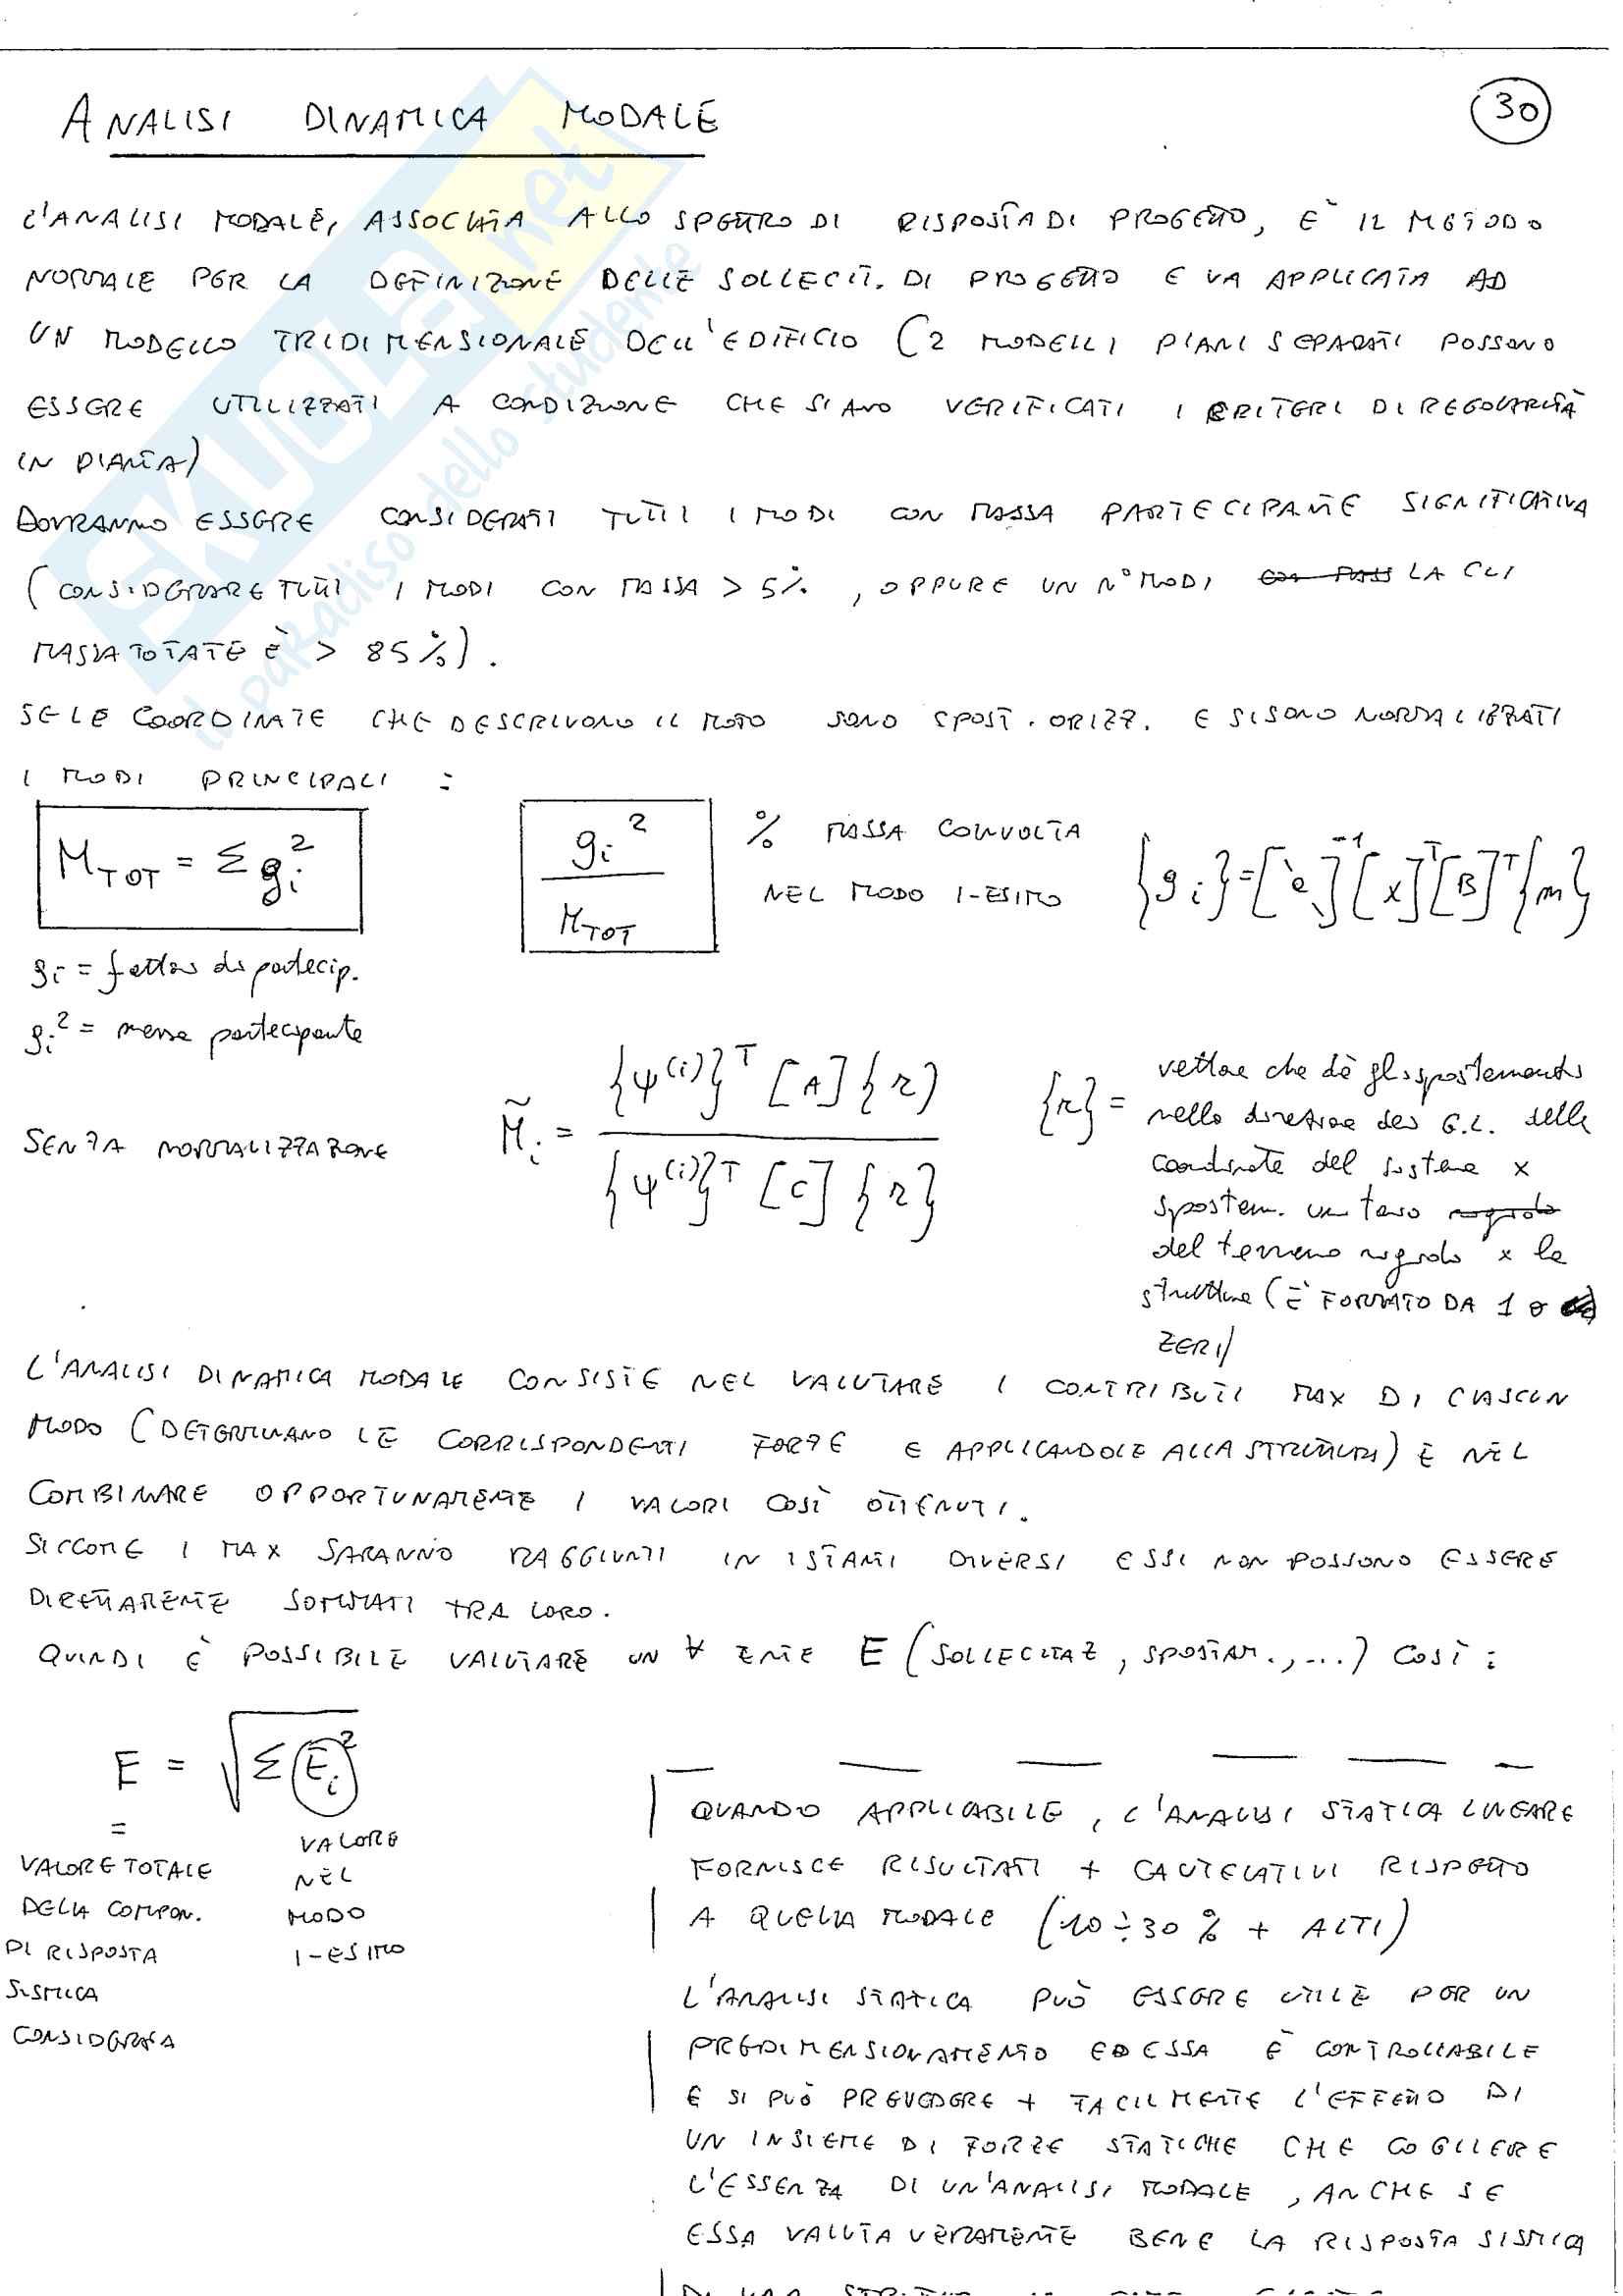 ANALISI DINAMICA MODALE
30
L'ANALISI MODALE, ASSOCIATA ALLO SPETTRO DI RISPOSTA DI PROGETTO, È IL METODO
NORMALE PER LA DEFINIZIONE DELLE SOLLECIT. DI PROGETTO E VA APPLICATA AD
UN MODELLO TRIDIMENSIONALE DELL'EDIFICIO (2 MODELLI PIANI SEPARATI POSSONO
ESSERE UTILIZZATI A CONDIZIONE CHE SIANO VERIFICATI I CRITERI DI REGOLARITÀ
IN PIANTA)
DOVRANNO ESSERE CONSIDERATI TUTTI I MODI CON MASSA PARTECIPANTE SIGNIFICATIVA
(CONSIDERARE TUTTI I MODI CON MASSA > 5%, OPPURE UN N° MODI LA CUI
MASSA TOTATE È > 85%).
SE LE COORDINATE CHE DESCRIVONO IL MOTO SONO SPOST. ORIZZ. E SI SONO NORMALIZZATI
I MODI PRINCIPALI :
M_TOT = Σ g_i²
g_i² / M_TOT
% MASSA COINVOLTA
NEL MODO I-ESIMO
{g_i} = [a]⁻¹ [X]ᵀ [B]ᵀ {m}
g_i = fattor di partecip.
g_i² = massa partecipante
SENZA NORMALIZZAZIONE
M̃_i = {ψ⁽ⁱ⁾}ᵀ [A] {r} / {ψ⁽ⁱ⁾}ᵀ [C] {r}
{r} = vettore che dà gli spostamenti
nella direzione dei G.L. delle
coordinate del sistema x
spostam. unitario
del terreno rigido x la
struttura (È FORMATO DA 1 o
ZERI)
L'ANALISI DINAMICA MODALE CONSISTE NEL VALUTARE I CONTRIBUTI MAX DI CIASCUN
MODO (DETERMINANO LE CORRISPONDENTI FORZE E APPLICANDOLE ALLA STRUTTURA) E NEL
COMBINARE OPPORTUNAMENTE I VALORI COSÌ OTTENUTI.
SICCOME I MAX SARANNO RAGGIUNTI IN ISTANTI DIVERSI ESSI NON POSSONO ESSERE
DIRETTAMENTE SOMMATI TRA LORO.
QUINDI È POSSIBILE VALUTARE UN ∀ ENTE E (SOLLECITAZ, SPOSTAM., ...) COSÌ :
E = √Σ E_i²
VALORE TOTALE
DELLA COMPON.
DI RISPOSTA
SISMICA
CONSIDERATA
VALORE
NEL
MODO
I-ESIMO
QUANDO APPLICABILE, L'ANALISI STATICA LINEARE
FORNISCE RISULTATI + CAUTELATIVI RISPETTO
A QUELLA MODALE (10÷30 % + ALTI)
L'ANALISI STATICA PUÒ ESSERE UTILE PER UN
PREDIMENSIONAMENTO ED ESSA È CONTROLLABILE
E SI PUÒ PREVEDERE + FACILMENTE L'EFFETTO DI
UN INSIEME DI FORZE STATICHE CHE COGLIERE
L'ESSENZA DI UN'ANALISI MODALE, ANCHE SE
ESSA VALUTA VERAMENTE BENE LA RISPOSTA SISMICA
SKUOLA.net
il paradiso dello studente